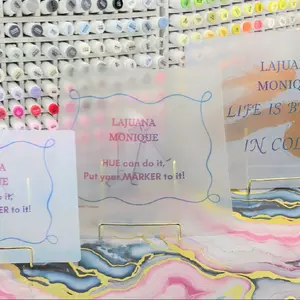 LAJUANA
MONIQUE
HUE can do it,
Put your MARKER to it!
LAJUANA
MONIQUE
LIFE IS B
IN COL
A
UE
it,
ER to it!